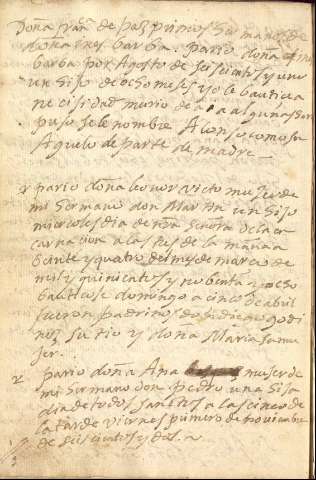 Doña franca de paz primos her manos de
doña ines barba. pario doña
barba por Agosto de seiscientos y uno
un hijo de ocho meses y se le bautiza
ne cesidad murio de a algunas oras
puso se le nombre Alonso como su
Aguelo de parte de madre
pario doña leonor victo mujer de
mi hermano don Martin un hijo
miercoles dia de nra señora de la en
carnacion a las seis de la mañana
beinte y quatro del mes de março de
mil y quinientos y nobenta y ocho
bauticose domingo a cinco de abril
fueron padrinos don diego godi
nez su tio y doña Maria su mu
jer.
pario doña Ana mujer de
mi hermano don pedro una hija
dia de todos sanctos a las cinco de
la tarde viernes primero de noviembre
de seiscientos y dos. a